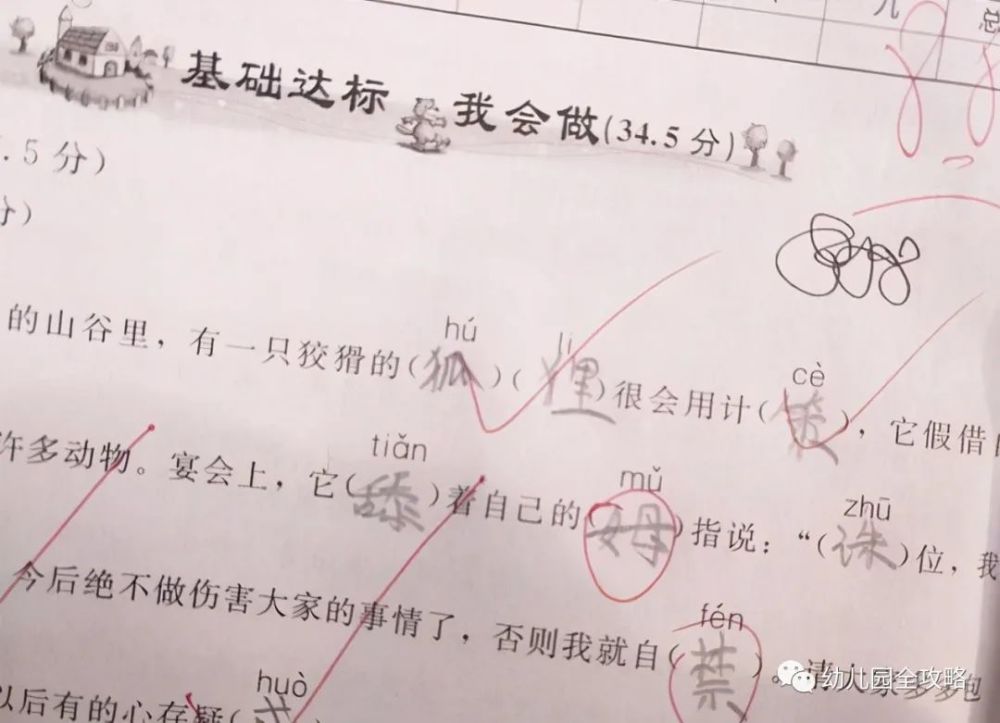 儿 总
基础达标 我会做(34.5 分)
.5 分)
分)
hú li cè
的山谷里，有一只狡猾的(狐)(狸)很会用计(策)，它假借
tiǎn mǔ zhū
许多动物。宴会上，它(舔)着自己的(姆)指说：“(诛)位，我
今后绝不做伤害大家的事情了，否则我就自(禁)。请大家多多包
fén
huò
以后有的心存疑(
幼儿园全攻略